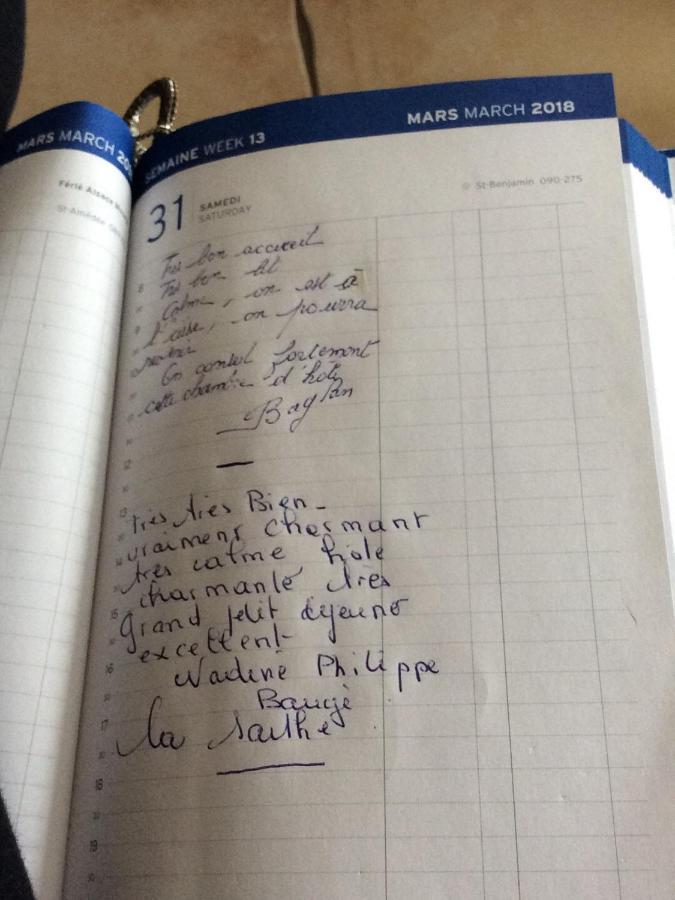 MARS MARCH 20
Férié Alsace
St-Amédée
SEMAINE WEEK 13
MARS MARCH 2018
31 SAMEDI
SATURDAY
St-Benjamin 090-275
Très bon accueil
Très bon lit
Calme, on est à
l'aise, on pourra
On conseil fortement
cette chambre d'hôte
8
9
12
13
très très Bien_
vraiment charmant
très calme hôte
charmante très
Grand petit déjeuné
excellent
Nadine Philippe
Baugé
la Sarthe
15
16
17
18
19